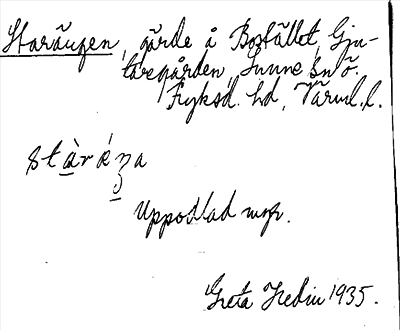 Starängen, gärde å Bostället, Gju-
taregården, Sunne sn ö.
Fryksd. hd, Värml. l.
Uppodlad myr.
Greta Hedin 1935.